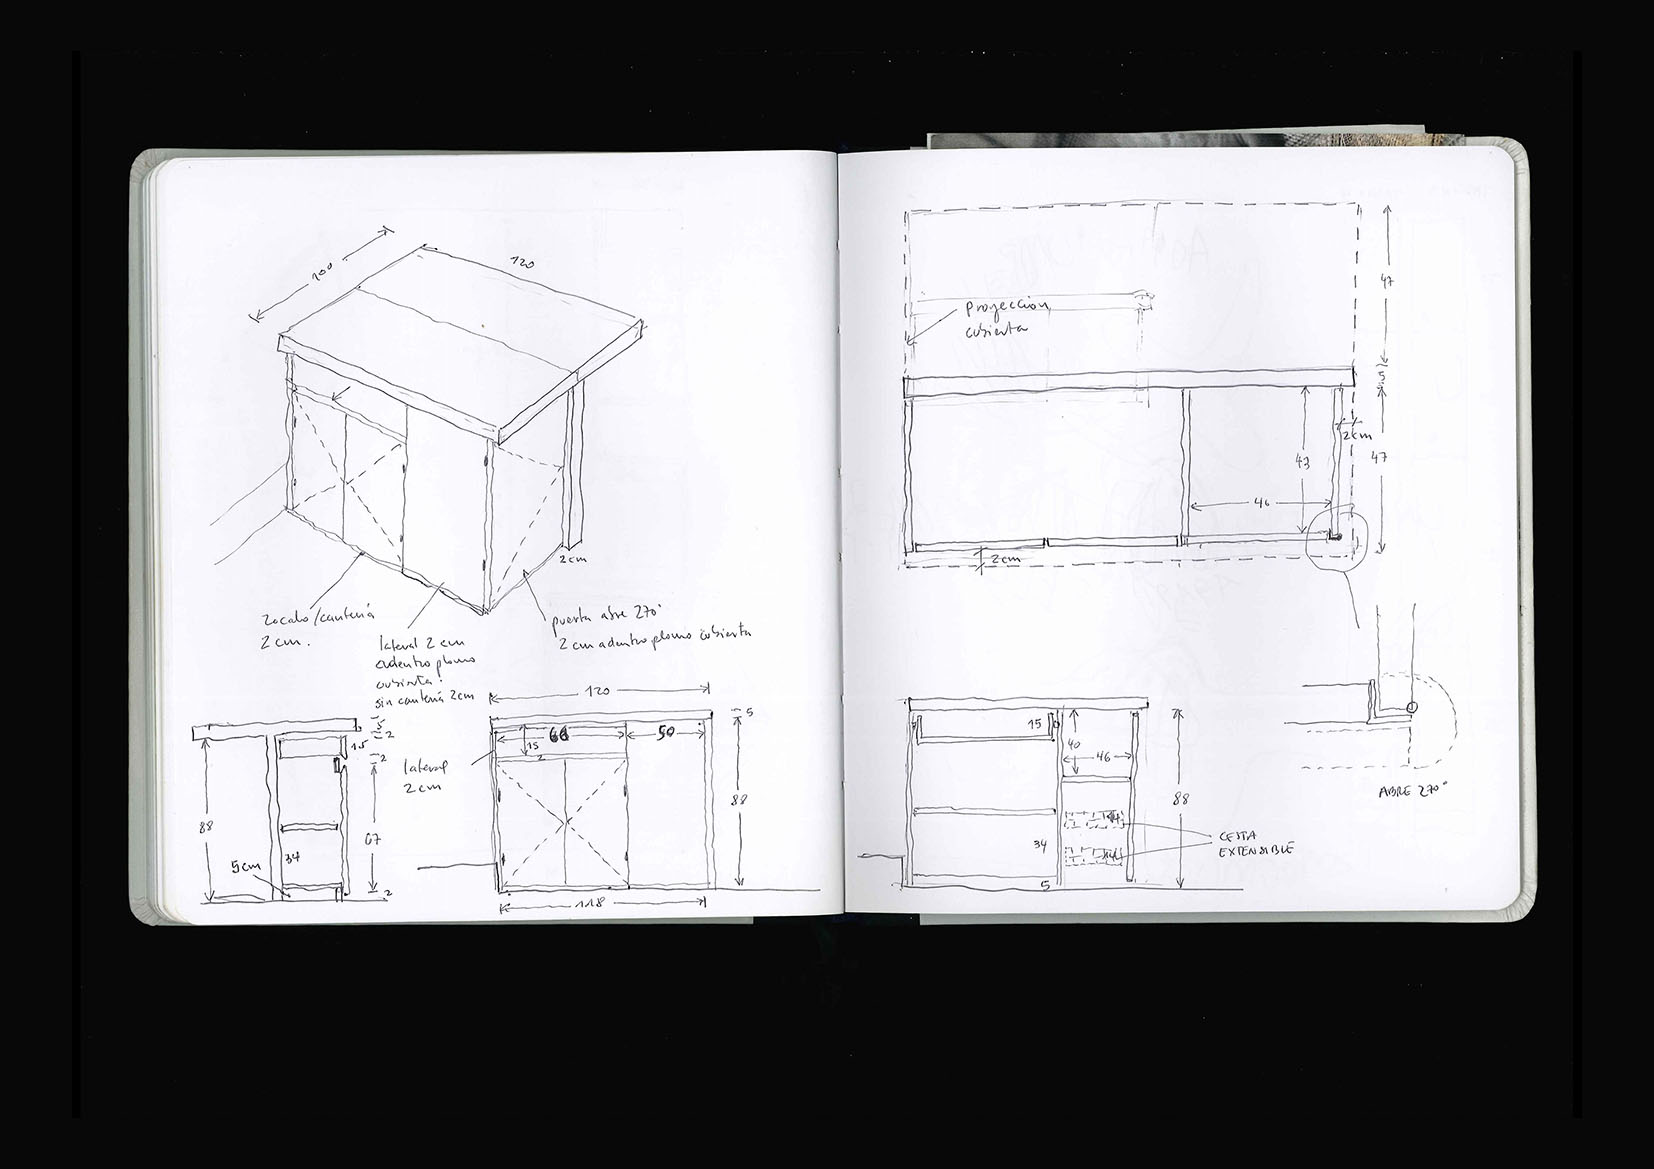 100
120
2 cm
zocalo/cantería
2 cm.
lateral 2 cm
adentro plomo
cubierta.
sin cantería 2cm
puerta abre 270°
2 cm adentro plomo cubierta
5
2
15
2
88
67
34
5cm
2
120
5
66
50
15
2
lateral
2cm
88
118
Proyección
cubierta
47
5
2cm
43
47
46
2cm
15
40
46
88
34
5
CESTA
EXTENSIBLE
ABRE 270°